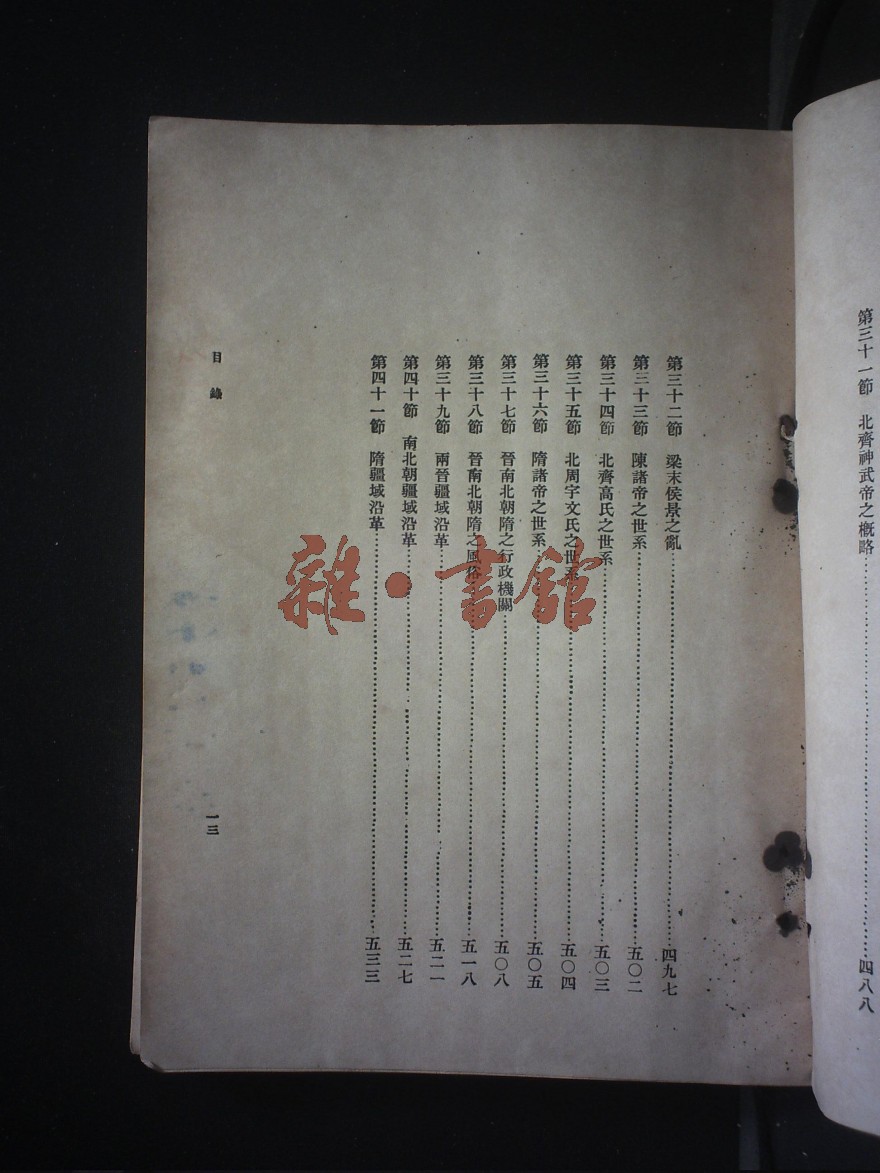 第三十一節　北齊神武帝之概略……四八八
第三十二節　梁末侯景之亂……四九七
第三十三節　陳諸帝之世系……五〇二
第三十四節　北齊高氏之世系……五〇三
第三十五節　北周宇文氏之世系……五〇四
第三十六節　隋諸帝之世系……五〇五
第三十七節　晉南北朝隋之行政機關……五〇八
第三十八節　晉南北朝隋之風俗……五一八
第三十九節　兩晉疆域沿革……五二一
第四十節　南北朝疆域沿革……五二七
第四十一節　隋疆域沿革……五三三
目錄
一三
雜·書館